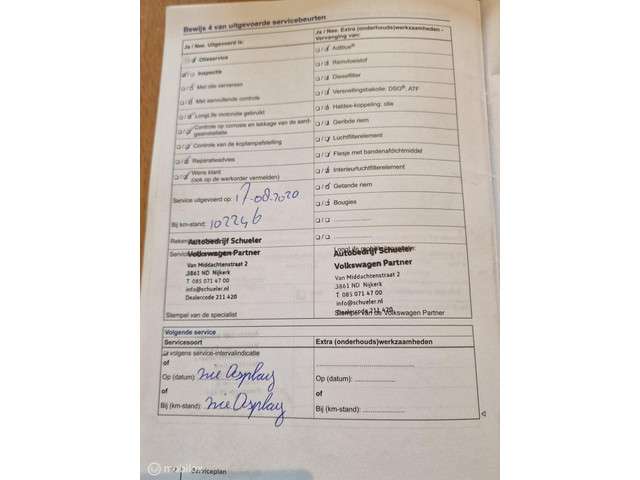 Bewijs 4 van uitgevoerde servicebeurten
Ja / Nee Uitgevoerd is:
Ja / Nee Extra (onderhouds)werkzaamheden -
Vervanging van:
Olieservice
Inspectie
Met olie verversen
Met aanvullende controle
LongLife motorolie gebruikt
Controle op corrosie en lekkage van de aard-
gasinstallatie
Controle van de koplampafstelling
Reparatieadvies
Wens klant
(ook op de werkorder vermelden)
Service uitgevoerd op: 17-08-2020
Bij km-stand: 102246
AdBlue®
Remvloeistof
Dieselfilter
Versnellingsbakolie: DSG®, ATF
Haldex-koppeling: olie
Geribde riem
Luchtfilterelement
Flesje met bandenafdichtmiddel
Interieurluchtfilterelement
Getande riem
Bougies
Autobedrijf Schueler
Volkswagen Partner
Van Middachtenstraat 2
3861 ND Nijkerk
T 085 071 47 00
info@schueler.nl
Dealercode 211 420
Stempel van de specialist
Autobedrijf Schueler
Volkswagen Partner
Van Middachtenstraat 2
3861 ND Nijkerk
T 085 071 47 00
info@schueler.nl
Dealercode 211 420
Stempel van de Volkswagen Partner
Volgende service
Servicesoort
Extra (onderhouds)werkzaamheden
volgens service-intervalindicatie
of
Op (datum): zie Display
of
Bij (km-stand): zie Display
Op (datum):
of
Bij (km-stand):
Serviceplan
mobilox